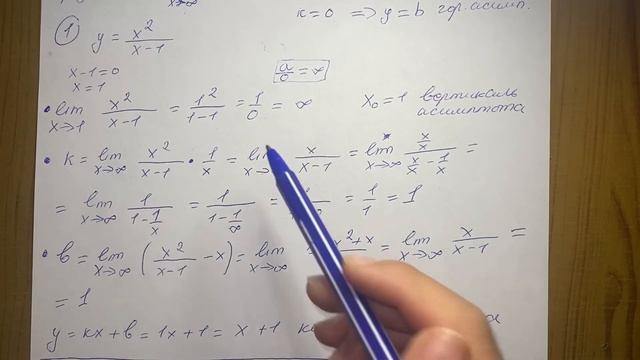 x→∞
к=0 => y=b гор. асимп.
① y = x²/(x-1)
x-1=0
x=1
a/0 = ∞
• lim x→1 x²/(x-1) = 1²/(1-1) = 1/0 = ∞ x₀=1 вертикаль
асимптота
• к = lim x→∞ x²/(x-1) • 1/x = lim x→ x/(x-1) = lim x→∞ (x/x)/(x/x - 1/x) =
= lim x→∞ 1/(1-1/x) = 1/(1-1/∞) = = 1/1 = 1
• в = lim x→∞ (x²/(x-1) - x) = lim x→∞ x²+x = lim x→∞ x/(x-1) =
= 1
y = кx + в = 1x + 1 = x + 1